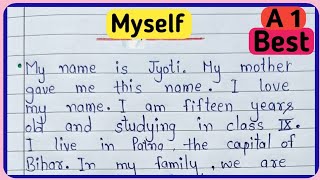 Myself
A 1
Best
• My name is Jyoti. My mother
gave me this name. I love
my name. I am fifteen years
old and studying in class IX.
I live in Patna, the capital of
Bihar. In my family, we are